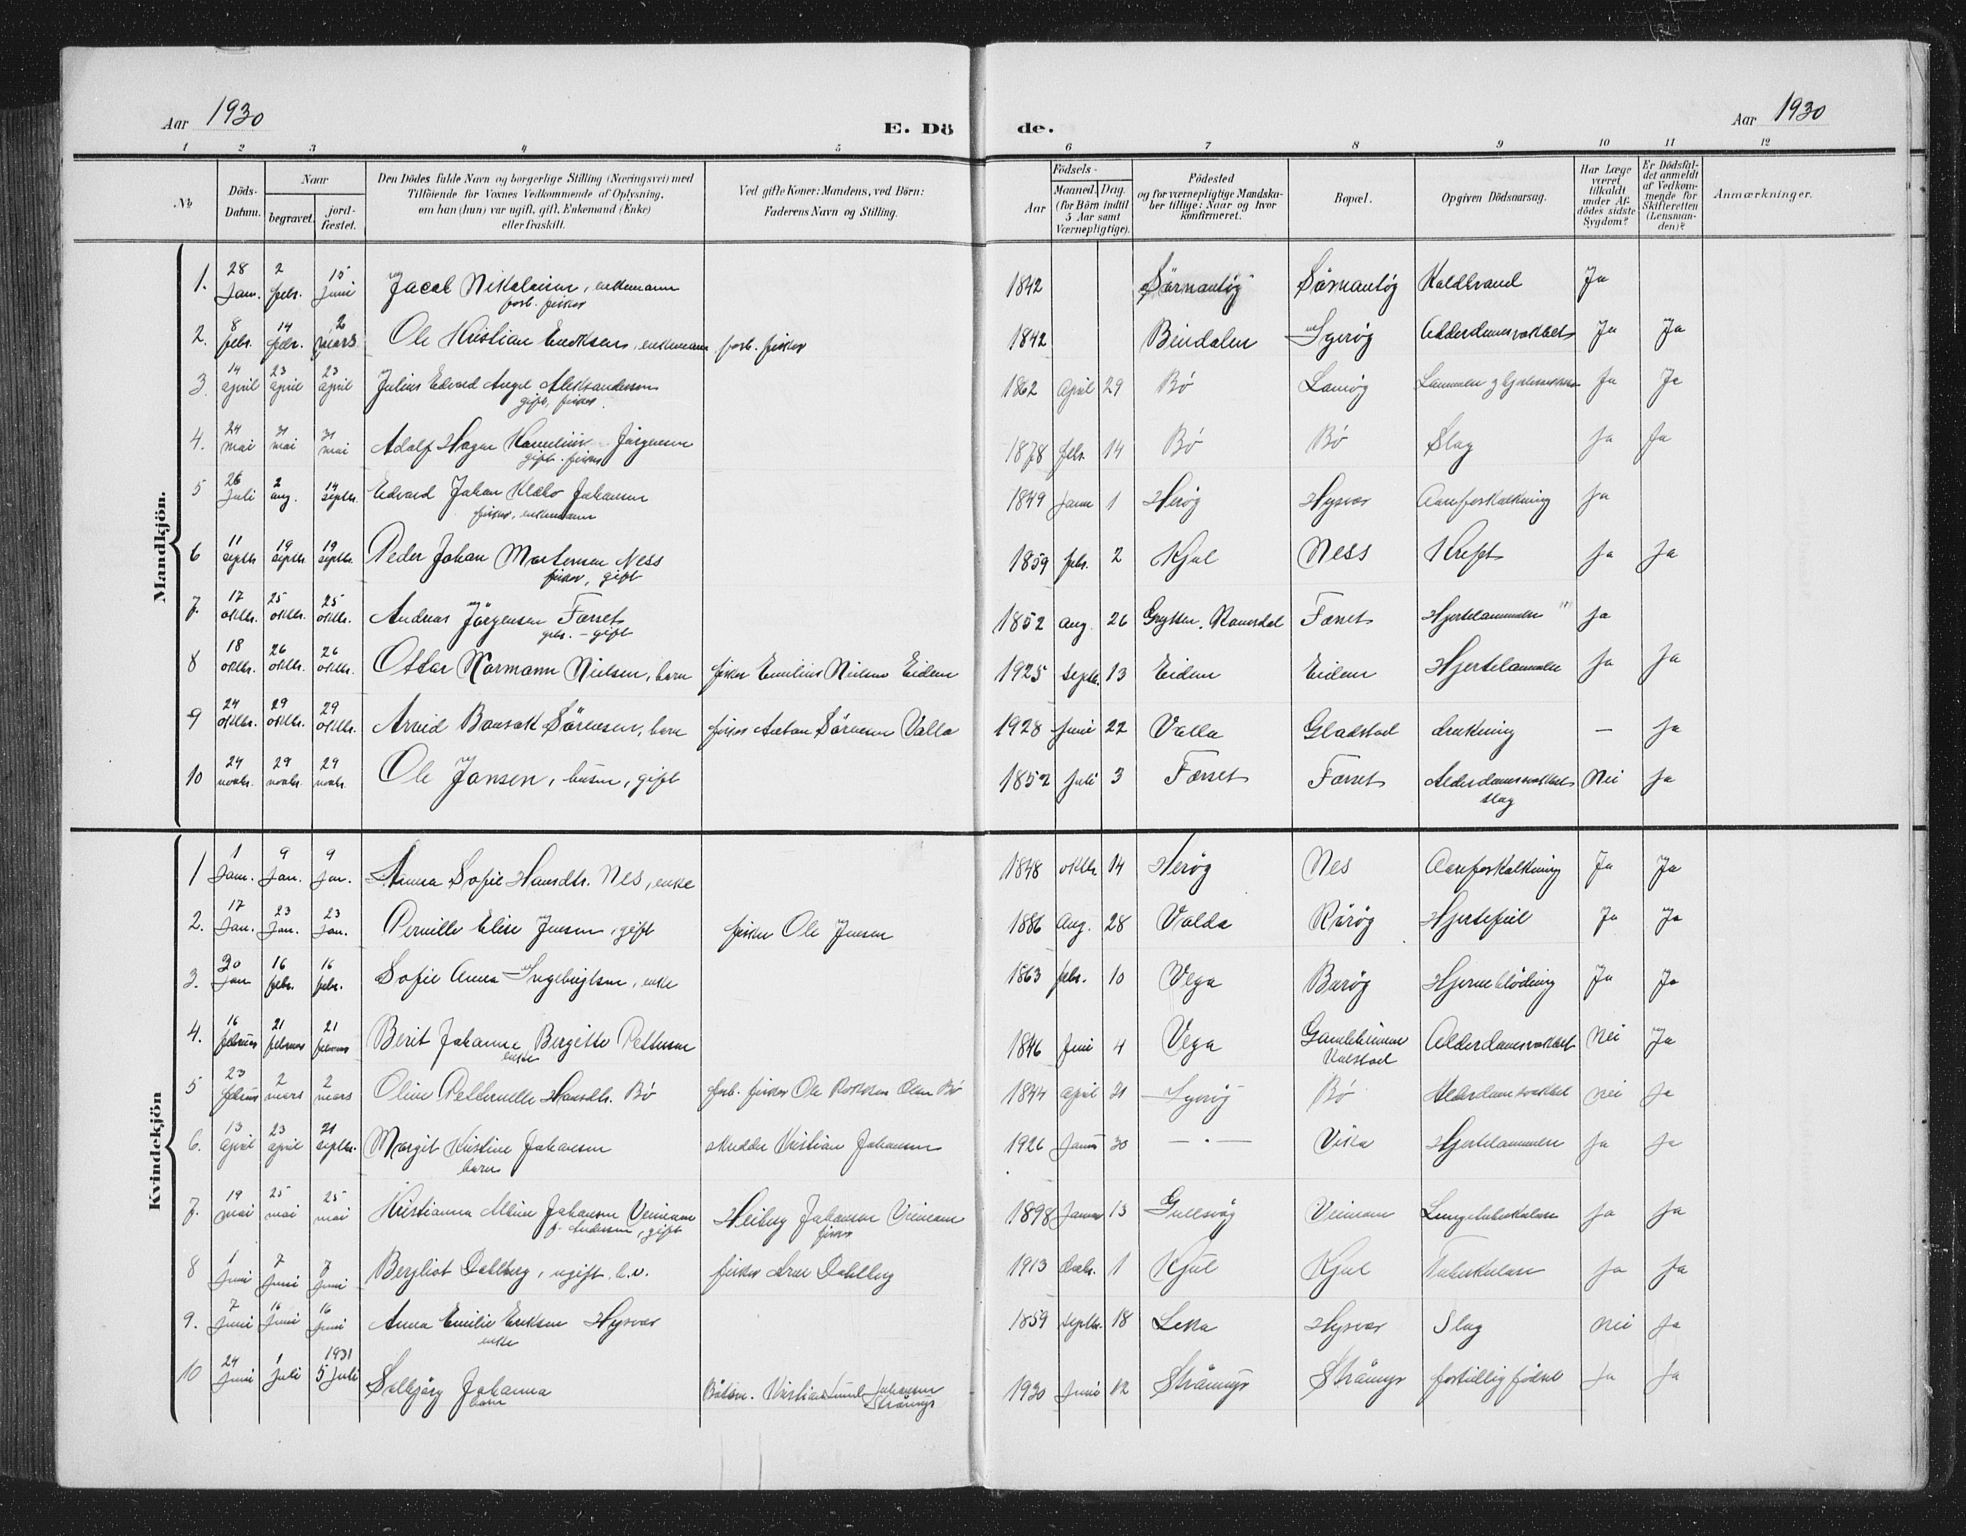 Aar 1930 E. Dö de. Aar 1930
1 2 3 4 5 6 7 8 9 10 11 12
No Döds-Datum. Naar begravet. jord-fæstet. Den Dödes fulde Navn og borgerlige Stilling (Næringsvei) med Tilföiende for Voxnes Vedkommende af Oplysning, om han (hun) var ugift, gift, Enkemand (Enke) eller fraskilt. Ved gifte Koner: Mandens, ved Börn: Faderens Navn og Stilling. Födsels- Aar Maaned. Dag. (for Börn indtil 5 Aar samt Værnepligtige). Födested og for værnepligtige Mandskaber tillige: Naar og hvor Konfirmeret. Bopæl. Opgiven Dödsaarsag. Har Læge været tilkaldt under Afdödes sidste Sygdom? Er Dödsfaldet anmeldt af Vedkommende for Skifteretten (Lensmanden)? Anmærkninger.
Mandkjön.
1. 28 Jan. 2 febr. 15 juni Jacob Nikolaisen, enkemann forh. fisker 1842 Sørnautøy Sørnautøy Koldbrand Ja
2. 8 febr. 14 febr. 2 mars Ole Kristian Eriksen, enkemann forh. fisker 1842 Bindalen Igerøy Alderdomssvakhet Ja Ja
3. 14 april 23 april 23 april Julius Edvard Angel Aleksandersen gift, fisker 1862 april 29 Bø Lamøy Ja Ja
4. 24 mai 31 mai 31 mai Adolf Hagen Jørgensen gift. fisker 1878 febr. 14 Bø Bø Slag Ja Ja
5 26 Juli 2 aug. 14 septbr. Edvard Johan Klæbo Johansen fisker, enkemann 1849 Janr 1 Herøy Hysvær Aareforkalkning Ja
6 11 septbr 19 septbr. 19 septbr. Peder Johan Mortensen Ness fisker, gift 1859 febr. 2 Kjul Ness Kreft Ja Ja
7. 17 oktbr. 25 oktbr. 25 oktbr. Andreas Jørgensen Færset gbr. - gift 1852 aug. 26 Grytten, Romsdal Færset Hjertelammelse Ja
8 18 oktbr. 26 oktbr. 26 oktbr. Ottar Normann Nielsen, barn fisker Emilius Nielsen Eidem 1925 septbr. 13 Eidem Eidem Hjertelammelse Ja Ja
9 24 oktbr. 29 oktbr. 29 oktbr. Arvid Bonsak Sørensen, barn fisker Anton Sørensen Valla 1928 juni 22 Valla Gladstad drukning — Ja
10 24 novbr. 29 novbr. 29 novbr. Ole Jansen, husm, gift 1852 juli 3 Færset Færset Alderdomssvakhet slag Nei Ja
Kvindekjön
1 1 Jan. 9 Jan. 9 Jan. Anna Sofie Hansdtr. Nes, enke 1848 oktbr 14 Herøy Nes Aareforkalkning Ja Ja
2. 17 Jan. 23 Jan. 23 Jan. Pernille Elise Jensen, gift fisker Ole Jensen 1886 aug. 28 Valda Rørøy Hjertefeil Ja Ja
3. 30 Jan 16 febr. 16 febr. Sofie Anna Ingebrigtsen, enke 1863 febr. 10 Vega Burøy Hjerneblødning Ja Ja
4. 16 februar 21 februar 21 februar Berit Johanne Bergitte Pettersen enke 1846 juni 4 Vega Gamlehjemmet Valstad Alderdomssvakhet Nei Ja
5 23 februar 2 mars 2 mars Oline Petternelle Hansdtr. Bø forh. fisker Ole Olsen Bø 1844 april 21 Igerøy Bø Alderdomssvakhet Nei Ja
6. 13 april 23 april 21 septbr. Margit Kristine Johansen barn skredder Kristian Johansen 1926 Januar 30 — . — Vika Hjertelammelse Ja Ja
7. 19 mai 25 mai 25 mai Kristianna Johansen Veimoen f. Andersen, gift Heiberg Johansen Veimoen fisker 1898 Januar 13 Gullsvåg Veimoen Lungetuberkulose Ja Ja
8 1 Juni 7 Juni 7 Juni Bergliot Dahlberg, ugift. h.v. fisker Arne Dahlberg 1913 decbr. 1 Kjul Kjul Tuberkulose Ja Ja
9. 7 Juni 16 Juni 16 Juni Anna Emilie Eriksen Hysvær enke 1859 septbr. 18 Leka Hysvær Slag Nei Ja
10 24 Juni 1 Juli 1931 5 Juli Solbjørg Johanna barn Båtsm. Kristian Johansen Strømøy 1930 Juni 12 Strømøy Strømøy fortidlig født Ja Ja